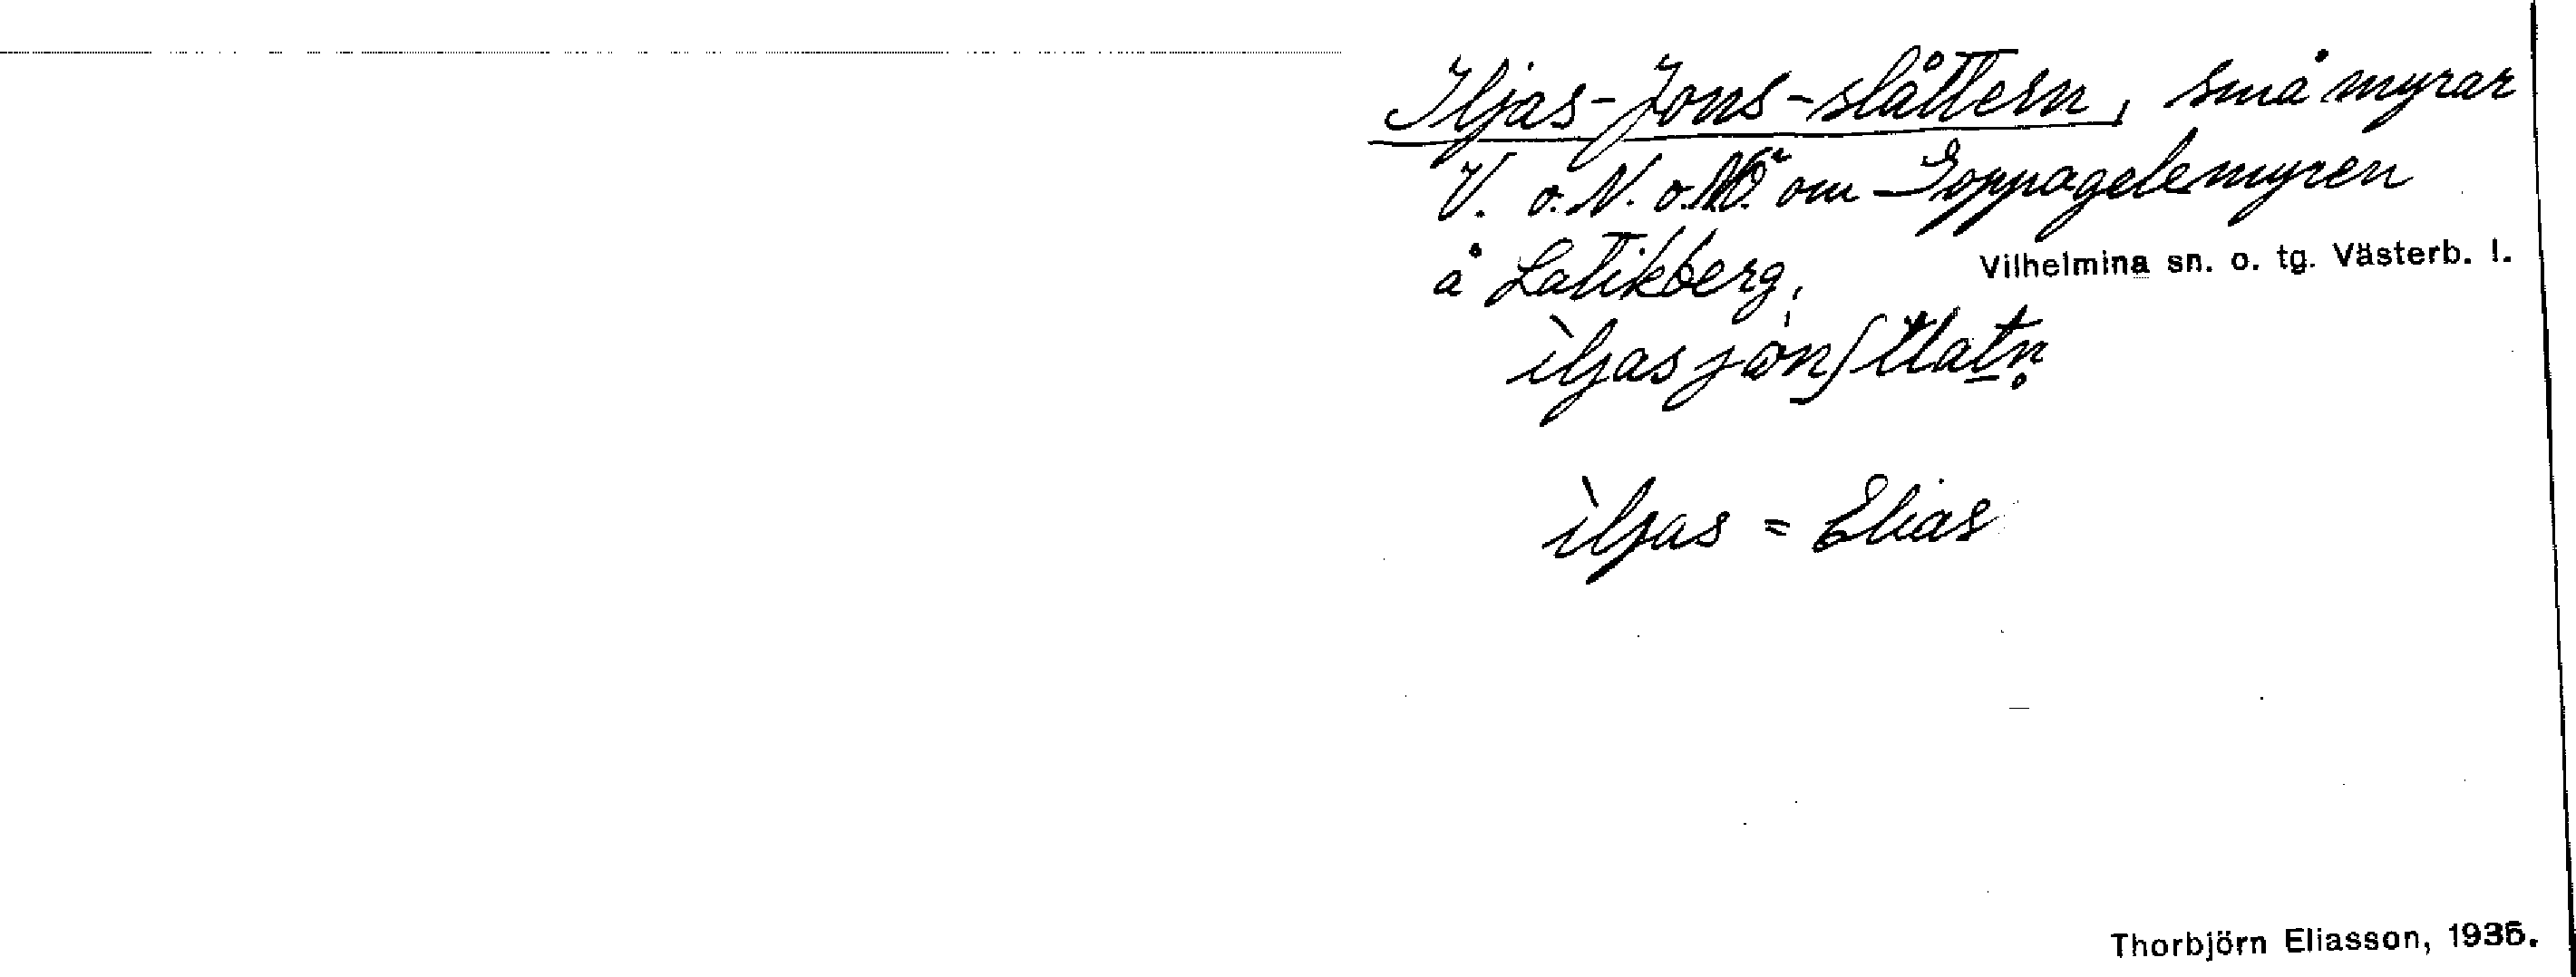 Iljas-Jons-slåttern, små myrar
V. o. N. o. NÖ. om Goppagelemyren
å Latikberg. Vilhelmina sn. o. tg. Västerb. l.
ìljas
ìljas = Elias
Thorbjörn Eliasson, 1935.